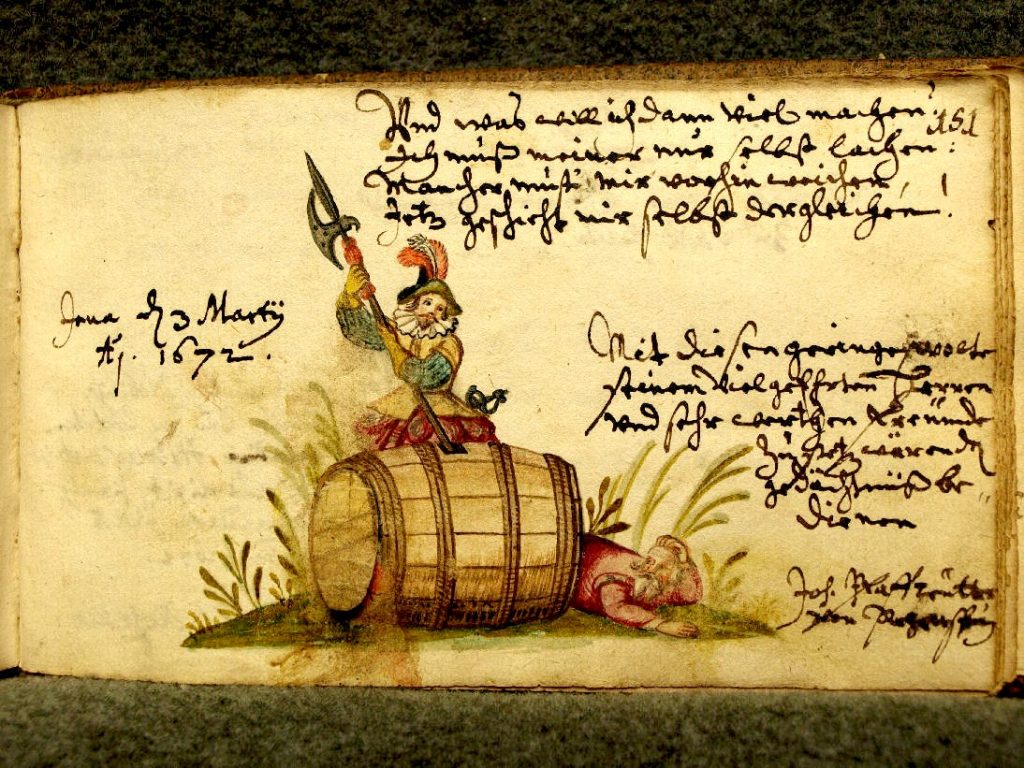 151
Und was will ich dann viel machen,
Ich muß meiner nur selbst lachen:
Mancher must mir vorhin weichen,
Jetz geschicht mir selbst dergleichen!
Jena d 3 Martij
Ao. 1672.
Mit diesen geringe wolte
seinem Vielgeehrten Herren
und sehr werthen Freunde
zu stetz wärende
gedächtnüß be
dienen
Joh.
von